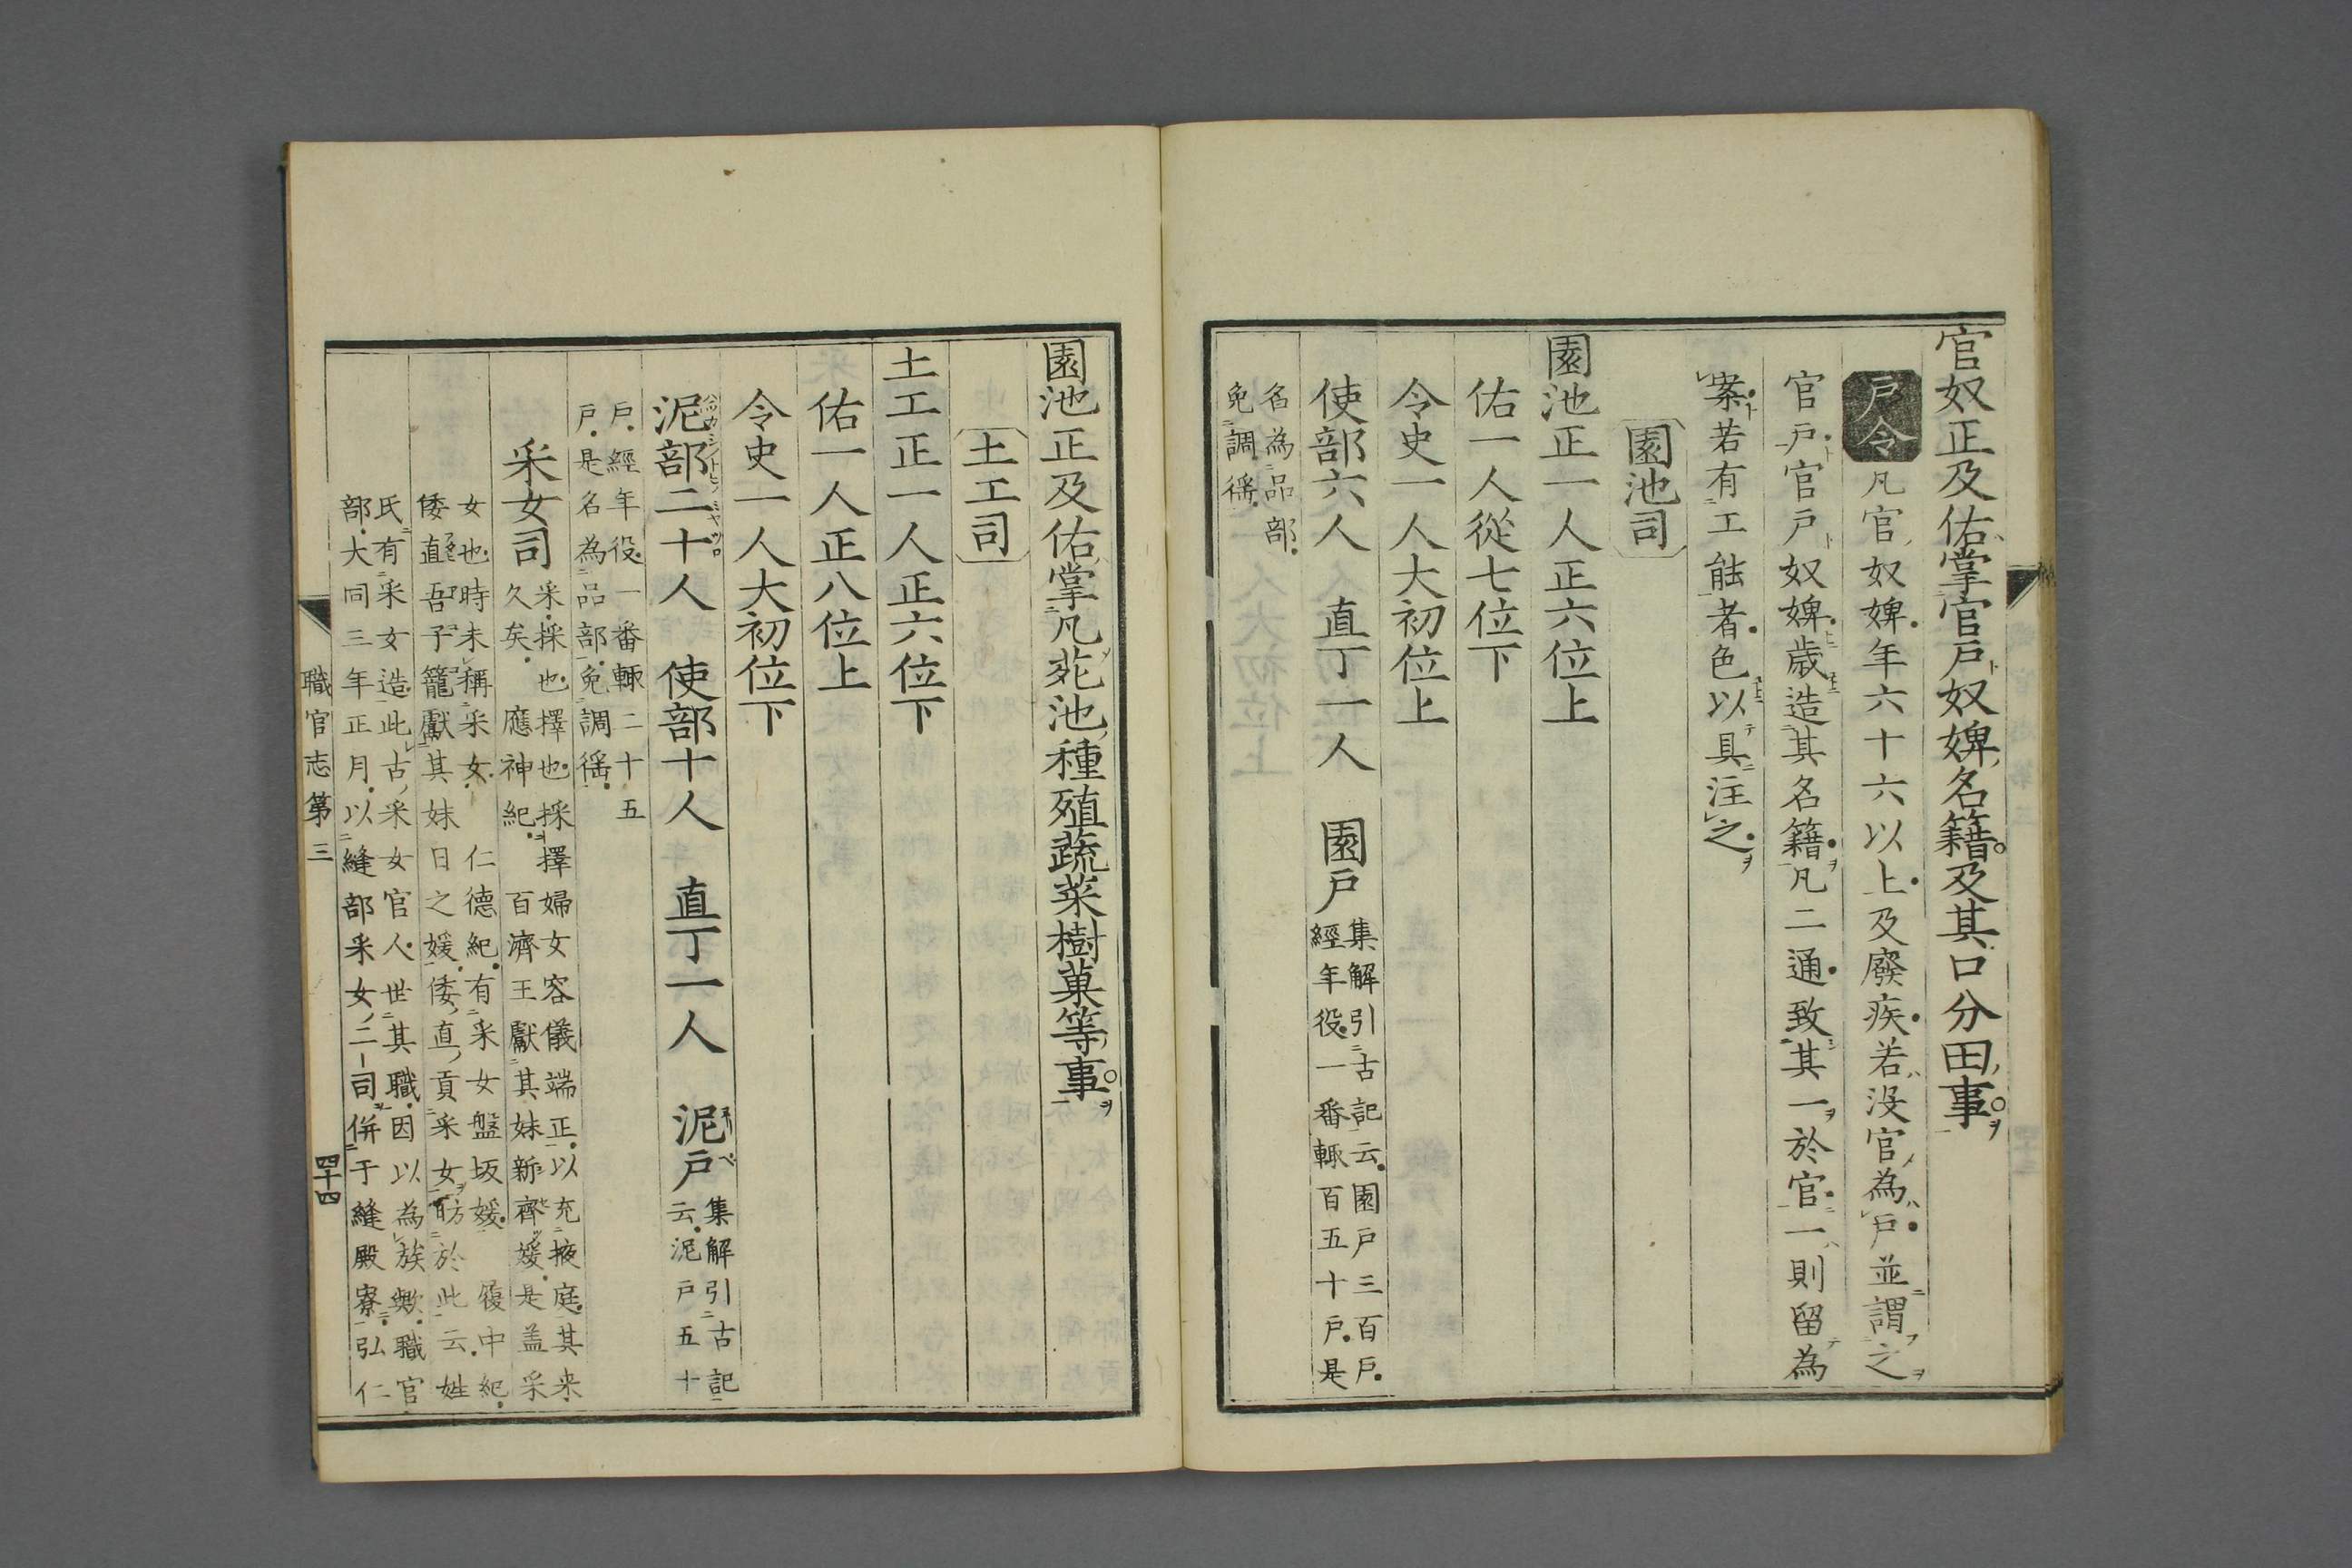 官奴正及佑掌官戸奴婢名籍及其口分田事
戸令
凡官奴婢年六十六以上及廢疾若没官為戸並謂之
官戸官戸奴婢歳造其名籍凡二通致其一於官一則留為
案若有工能者色以具注之
園池司
園池正一人正六位上
佑一人從七位下
令史一人大初位上
使部六人 直丁一人 園戸 集解引古記云園戸三百戸
經年役一番輙百五十戸是
名為品部
免調徭
園池正及佑掌凡苑池種殖蔬菜樹菓等事
土工司
土工正一人正六位下
佑一人正八位上
令史一人大初位下
泥部二十人 使部十人 直丁一人 泥戸 集解引古記
云泥戸五十
戸經年役一番輙二十五
戸是名為品部免調徭
采女司 采採也擇也採擇婦女容儀端正以充掖庭其来
久矣 應神紀 百濟王獻其妹新齊媛是盖采
女也時未稱采女 仁德紀有采女盤坂媛 履中紀
倭直吾子籠獻其妹日之媛倭直貢采女昉於此云姓
氏有采女造此古采女官人世其職因以為族歟職官
部大同三年正月以縫部采女二司併于縫殿寮弘仁
職官志第三
四十四